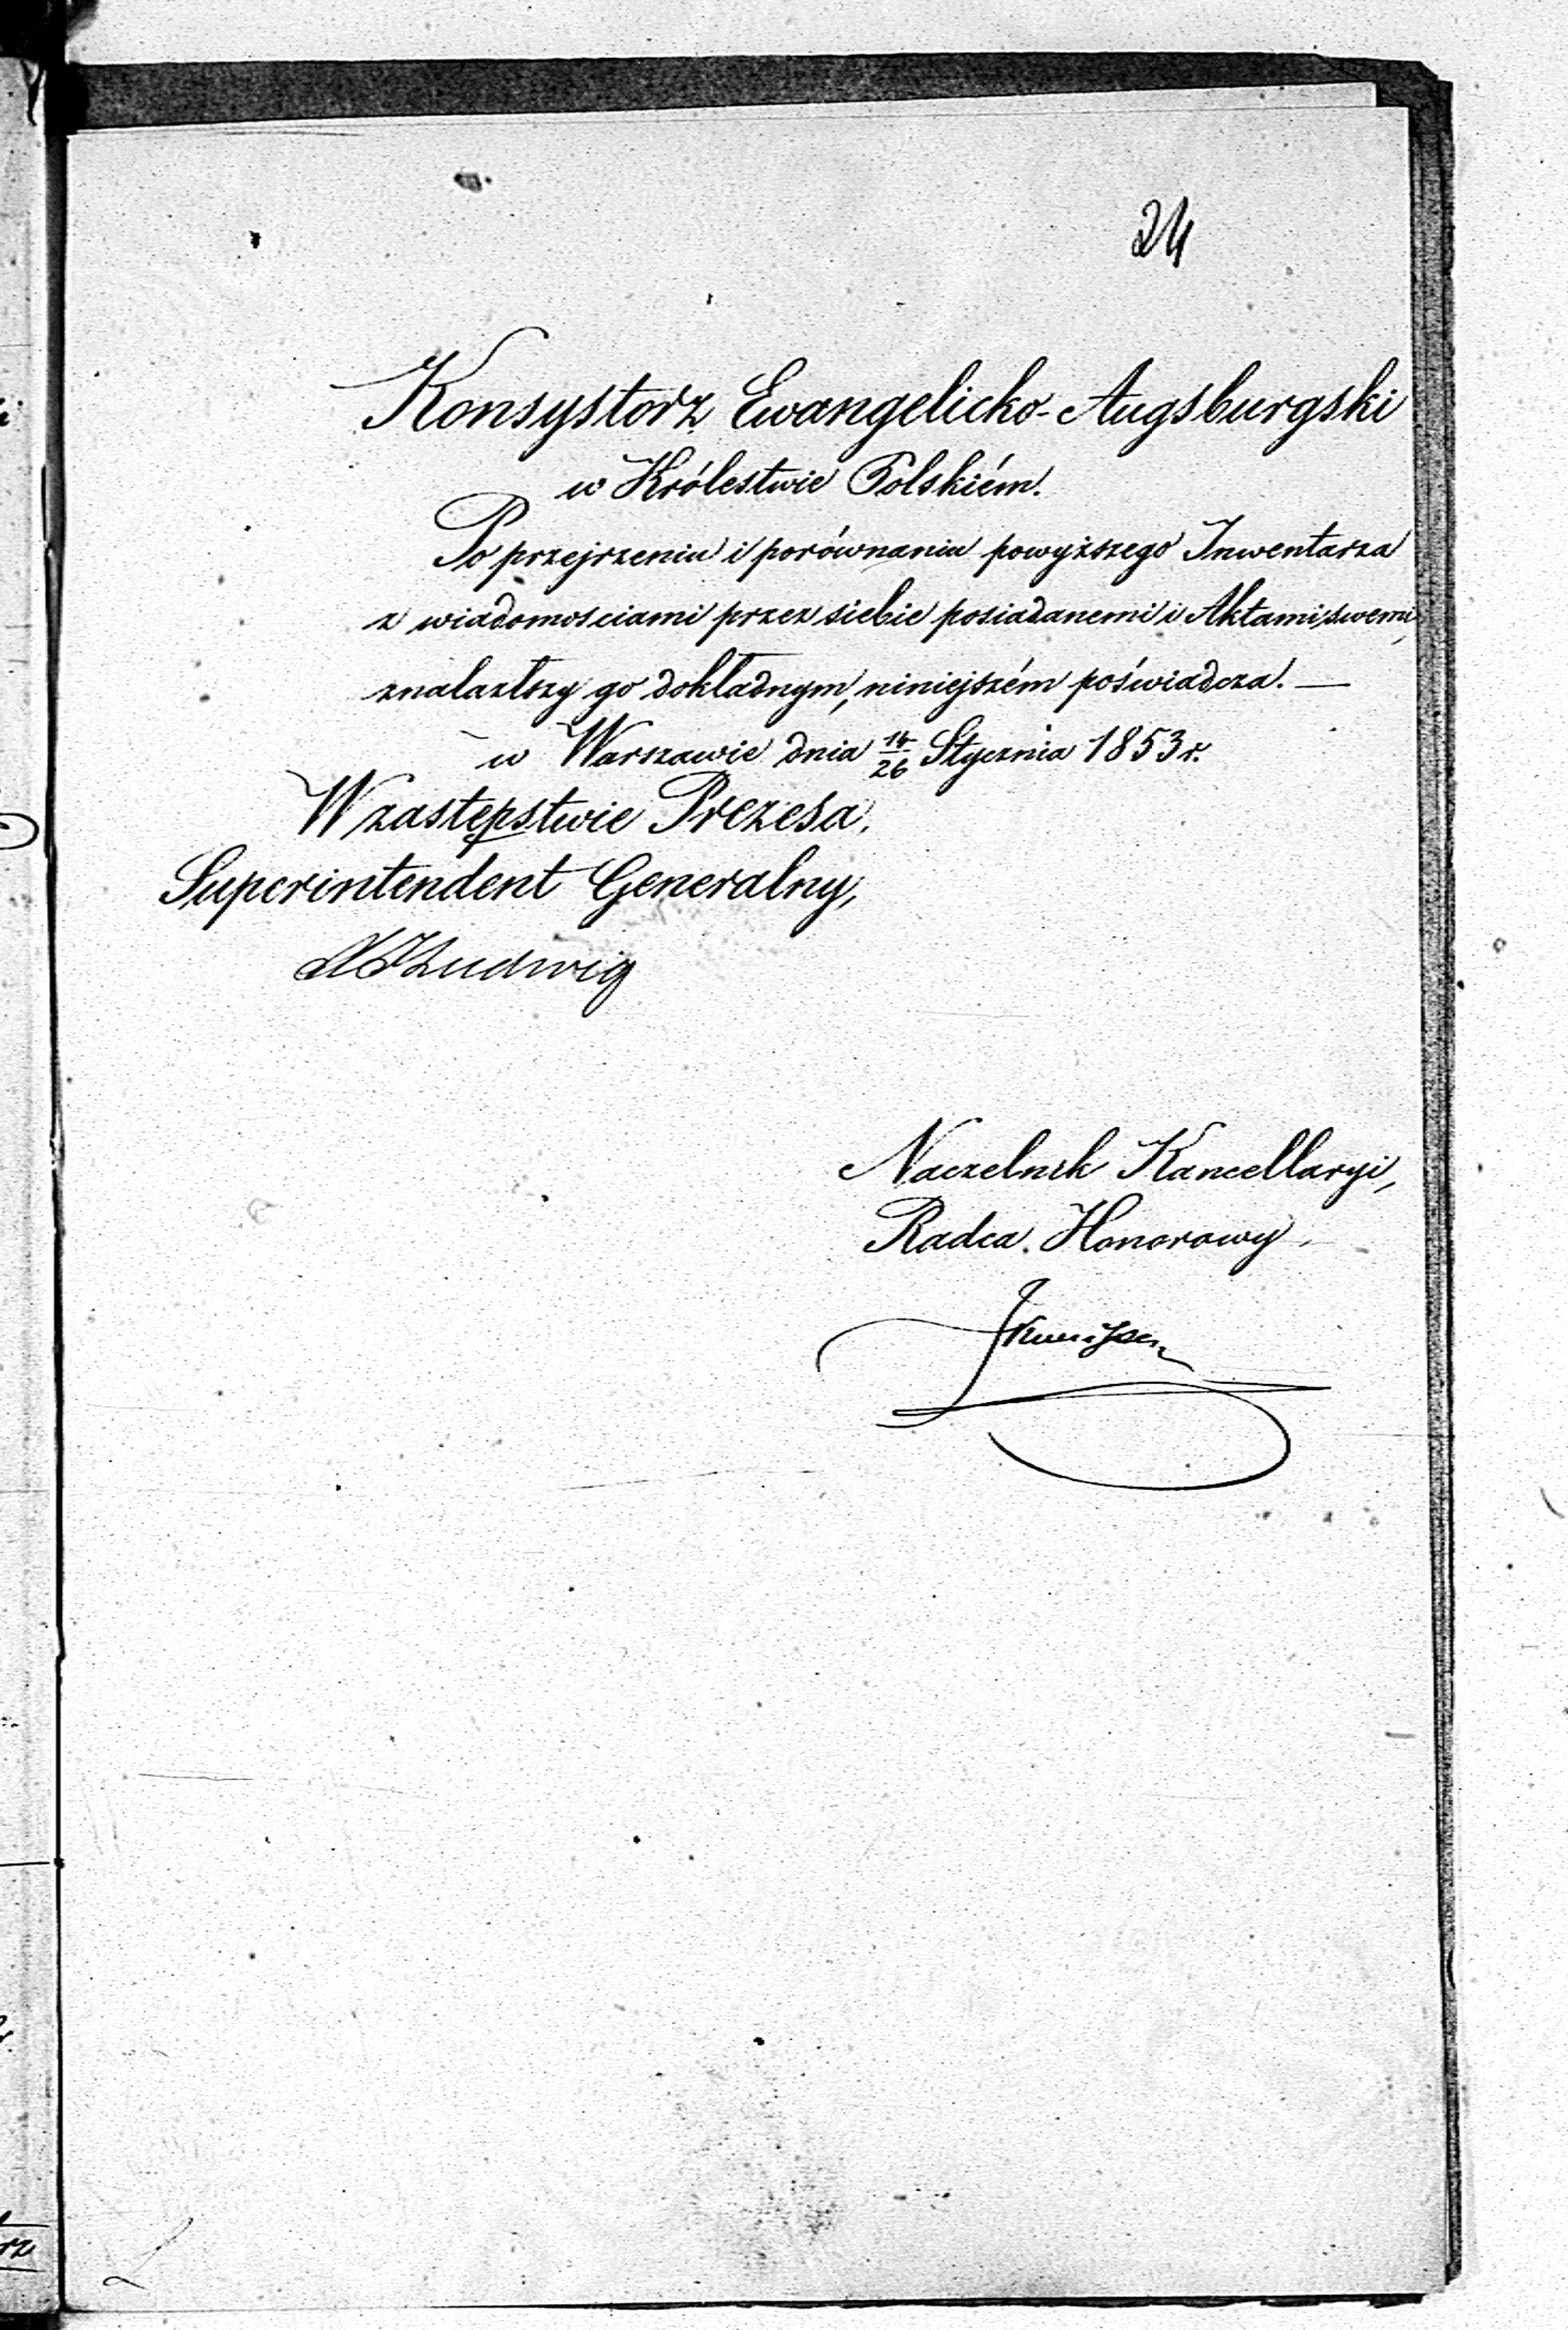 24
Konsystorz Ewangelicko-Augsburgski
w Królestwie Polskiém.
Po przejrzeniu i porównaniu powyższego Inwentarza
z wiadomościami przez siebie posiadanemi i Aktami swemi,
znalazłszy go dokładnym, niniejszém poświadcza. —
w Warszawie dnia 14/26 Stycznia 1853 r.
W zastępstwie Prezesa,
Superintendent Generalny,
Ludwig
Naczelnik Kancellaryi,
Radca Honorowy